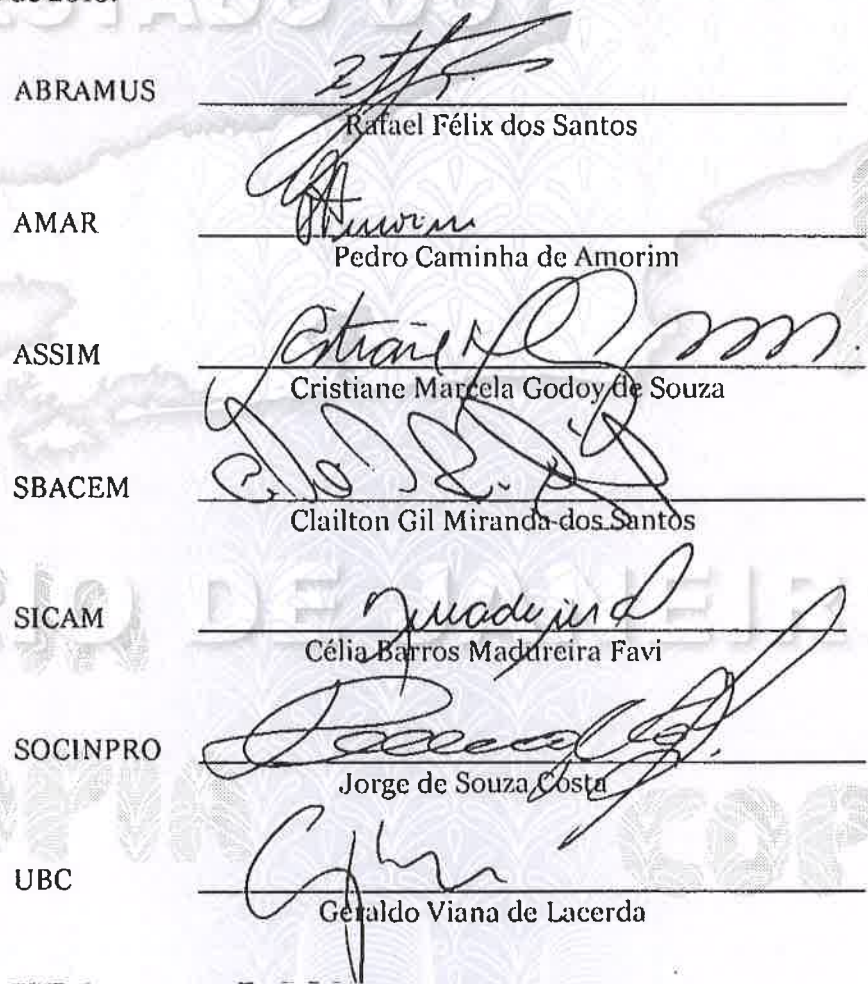 ESTADO DO
ABRAMUS
Rafael Félix dos Santos
AMAR
Amorim
Pedro Caminha de Amorim
ASSIM
Cristiane
Cristiane Marcela Godoy de Souza
SBACEM
Clailton Gil Miranda dos Santos
SICAM
Madureira
Célia Barros Madureira Favi
RIO DE JANEIR
SOCINPRO
Jorge de Souza Costa
UBC
Geraldo Viana de Lacerda